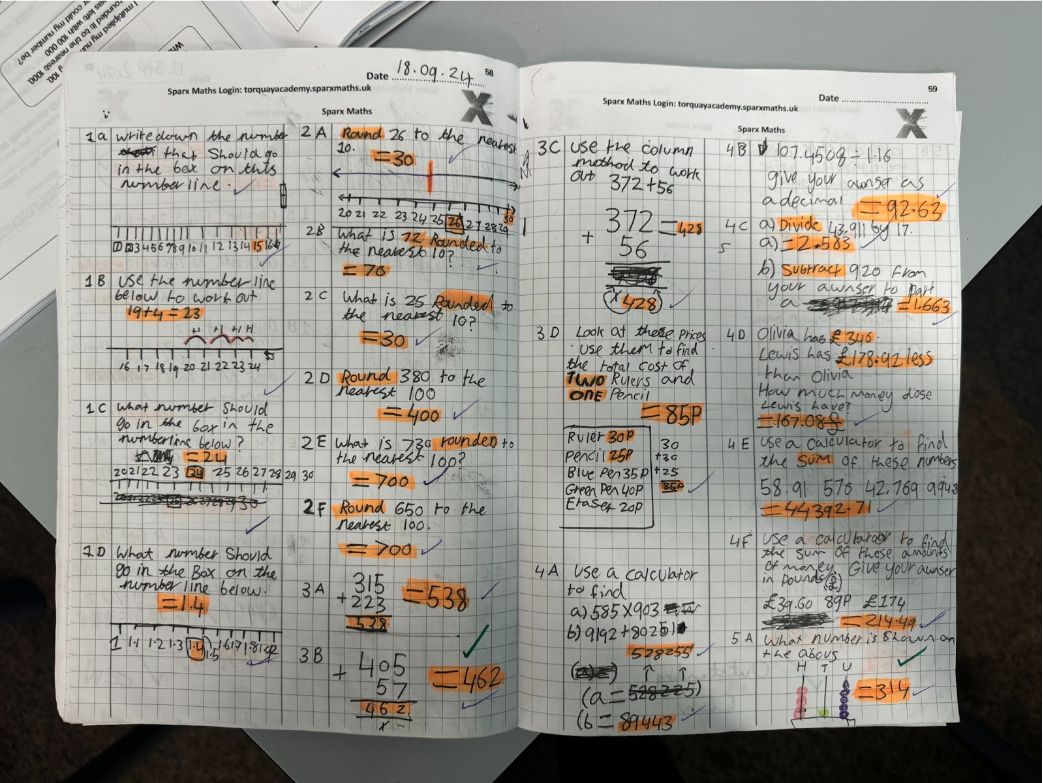 I multiplied my nu
rounded it to the nearest 100.
was left with 100 000
could my number be?
Date 18.09.24 58
Sparx Maths Login: torquayacademy.sparxmaths.uk
Sparx Maths
1a write down the number
that should go
in the box on this
number line.
15
1B use the number line
below to work out
19+4=23
+1 +1 +1
16 17 18 19 20 21 22 23 24
1C What number should
go in the box in the
numberline below?
=24
20 21 22 23 24 25 26 27 28 29 30
1D What number should
go in the Box on the
number line below.
=1.4
1 1.1 1.2 1.3 1.4 1.5
2A Round 26 to the nearest
10.
=30
20 21 22 23 24 25 26 27 28 29 30
2B What is 72 Rounded to
the nearest 10?
=70
2C What is 25 Rounded to
the nearest 10?
=30
2D Round 380 to the
nearest 100
=400
2E What is 730 rounded to
the nearest 100?
=700
2F Round 650 to the
nearest 100.
=700
3A 315 =538
+223
3B 405 =462
+ 57
462
59
Date
Sparx Maths Login: torquayacademy.sparxmaths.uk
Sparx Maths
3C use the column
method to work
out 372+56
372 =428
+ 56
428
3D Look at these Prices
use them to find
the total cost of
TWO Rulers and
ONE Pencil
=85P
Ruler 30P
Pencil 25P
Blue Pen 35P
Green Pen 40P
Eraser 20P
30
+30
+25
85P
4A Use a calculator
to find
a) 585x903
b) 9192+80251
528255
(b = 89443
4B 107.4508÷1.16
give your awnser as
a decimal
=92.63
4C a) Divide 43.911 by 17.
a) =2.583
b) Subtract 920 from
your awnser to part
a =1.663
4D Olivia has £346
Lewis has £178.92 less
then Olivia
How much money dose
Lewis have?
=167.08
4E use a calculator to find
the sum of these numbers
58.91 576 42.769
=44392.71
4F use a calculator to find
the sum of these amounts
of money. Give your awnser
in pounds (£)
£39.60 89P £174
=214.49
5A What number is shown on
the abous
H T U
=314